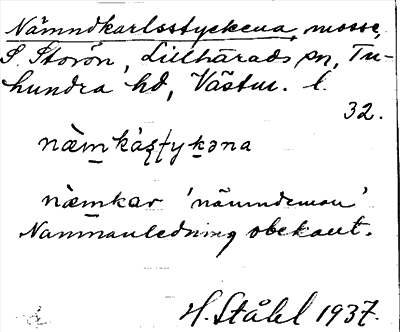 Nämndkarlsstyckena, mosse,
S. Storön, Lillhärads sn, Tu-
hundra hd, Västm. l.
32.
næ̀m̲ká̀ʂʈyk̲əna
næ̀m̲kar 'nämndeman'
Namnanledning obekant.
H. Ståhl 1937.